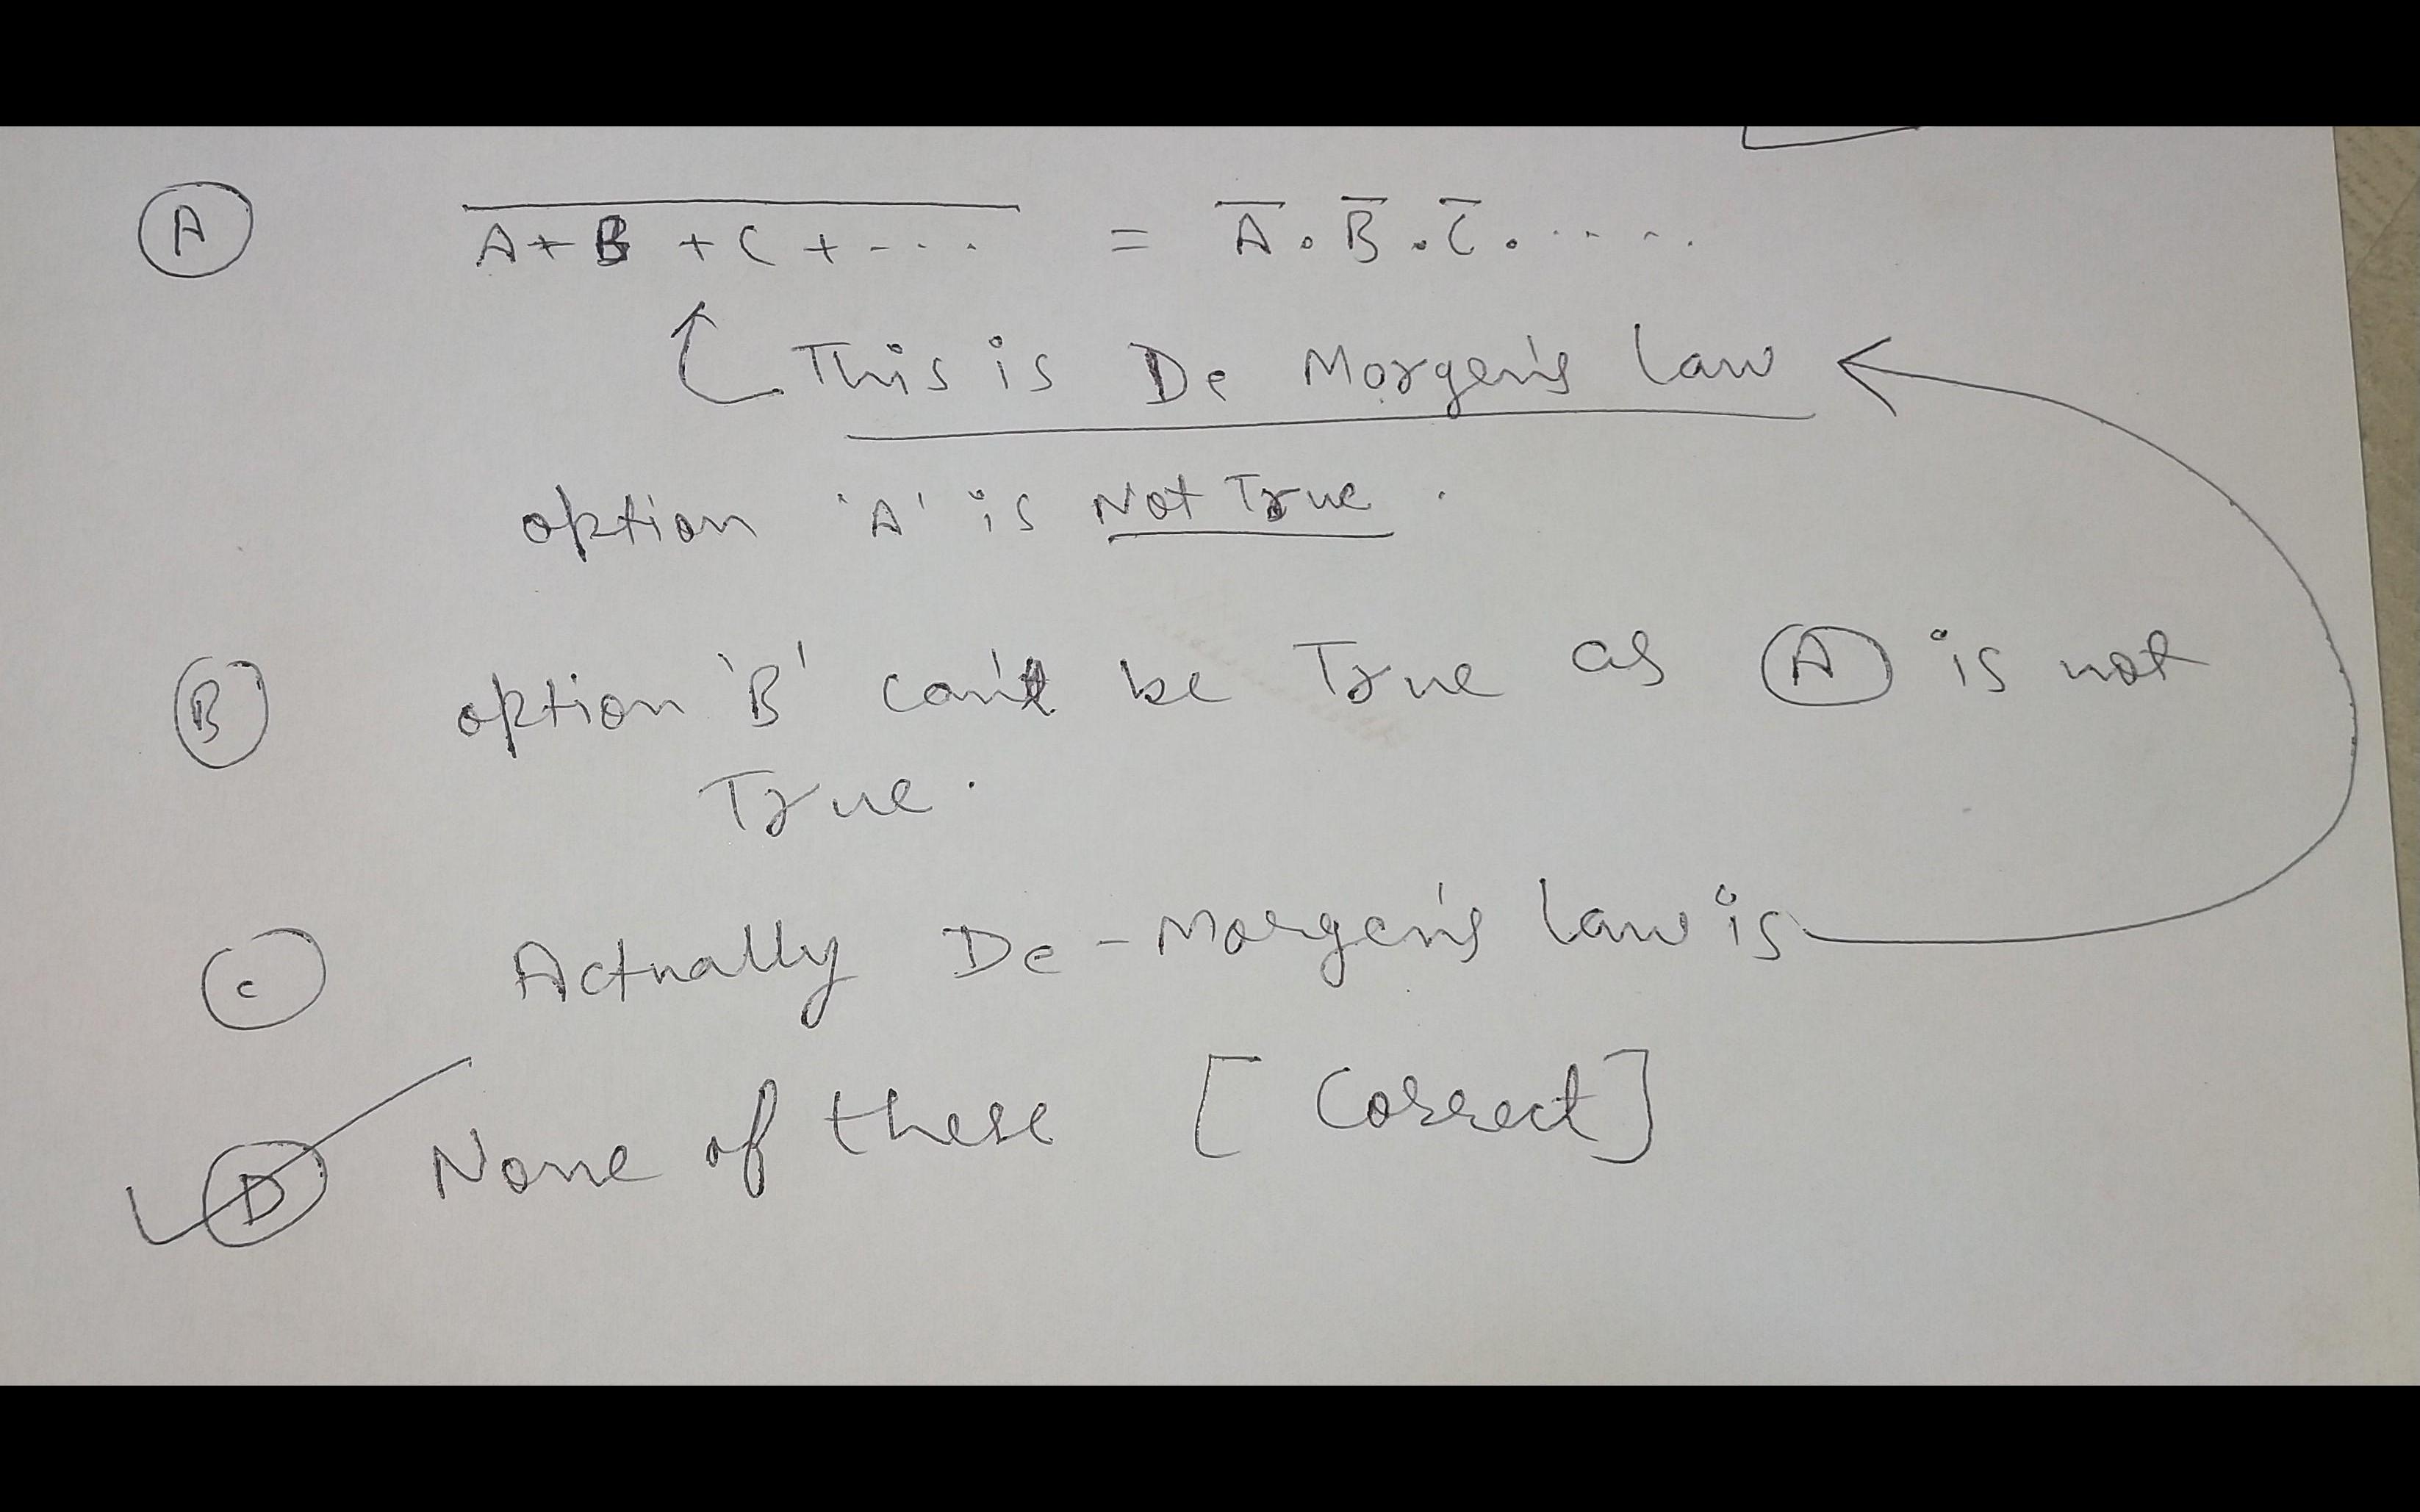 (A) $\overline{A+B+C+----}$ = $\overline{A}.\overline{B}.\overline{C}.-----$
This is De Morgen's law
option 'A' is Not True .
(B) option 'B' can't be True as (A) is not
True .
(C) Actually De-Morgen's law is
(D) None of these [Correct]